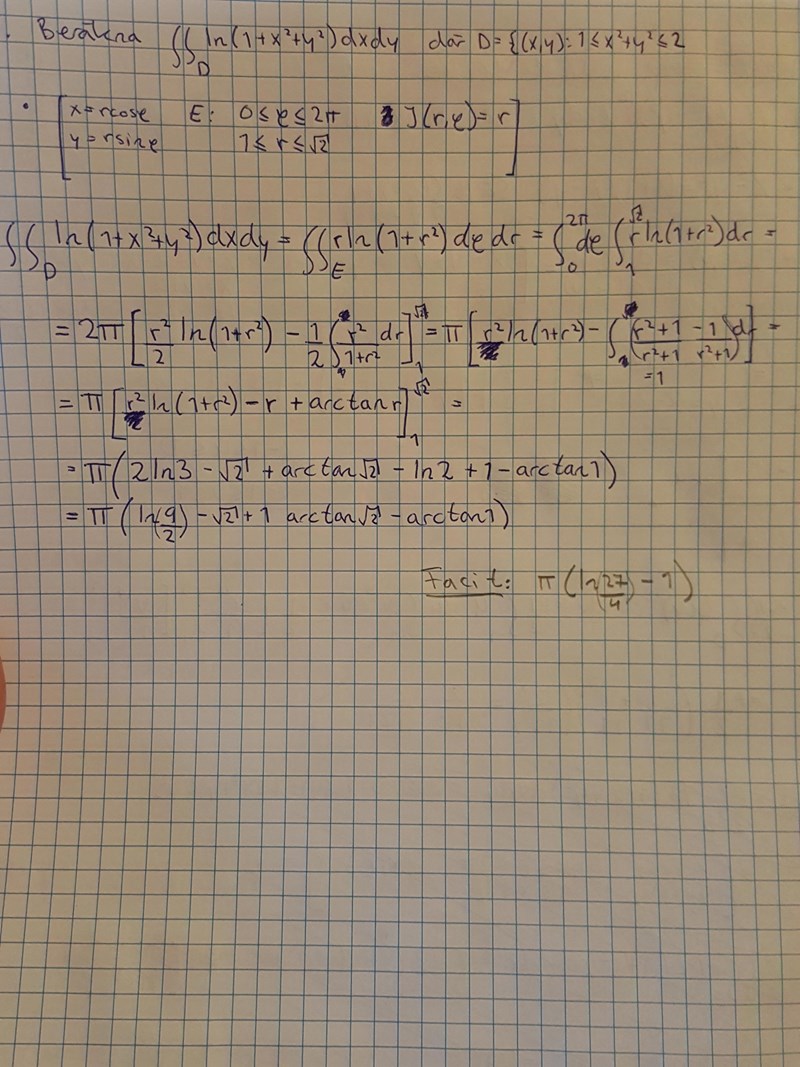 . Beräkna ∬_D ln(1+x²+y²)dxdy där D={(x,y): 1≤x²+y²≤2
• [x=rcosφ E: 0≤φ≤2π J(r,φ)=r]
y=rsinφ 1≤r≤√2
∬_D ln(1+x²+y²)dxdy = ∬_E rln(1+r²)dφdr = ∫_0^{2π} dφ ∫_1^{√2} rln(1+r²)dr =
= 2π[r²/2 ln(1+r²) - 1/2 ∫ r²/(1+r²) dr]_1^{√2} = π[r² ln(1+r²) - ∫((r²+1)/(r²+1) - 1/(r²+1))dr] =
=1
= π[r² ln(1+r²) - r + arctanr]_1^{√2} =
= π(2ln3 - √2 + arctan√2 - ln2 + 1 - arctan1)
= π(ln(9/2) - √2 + 1 arctan√2 - arctan1)
Facit: π(ln(27/4) - 1)